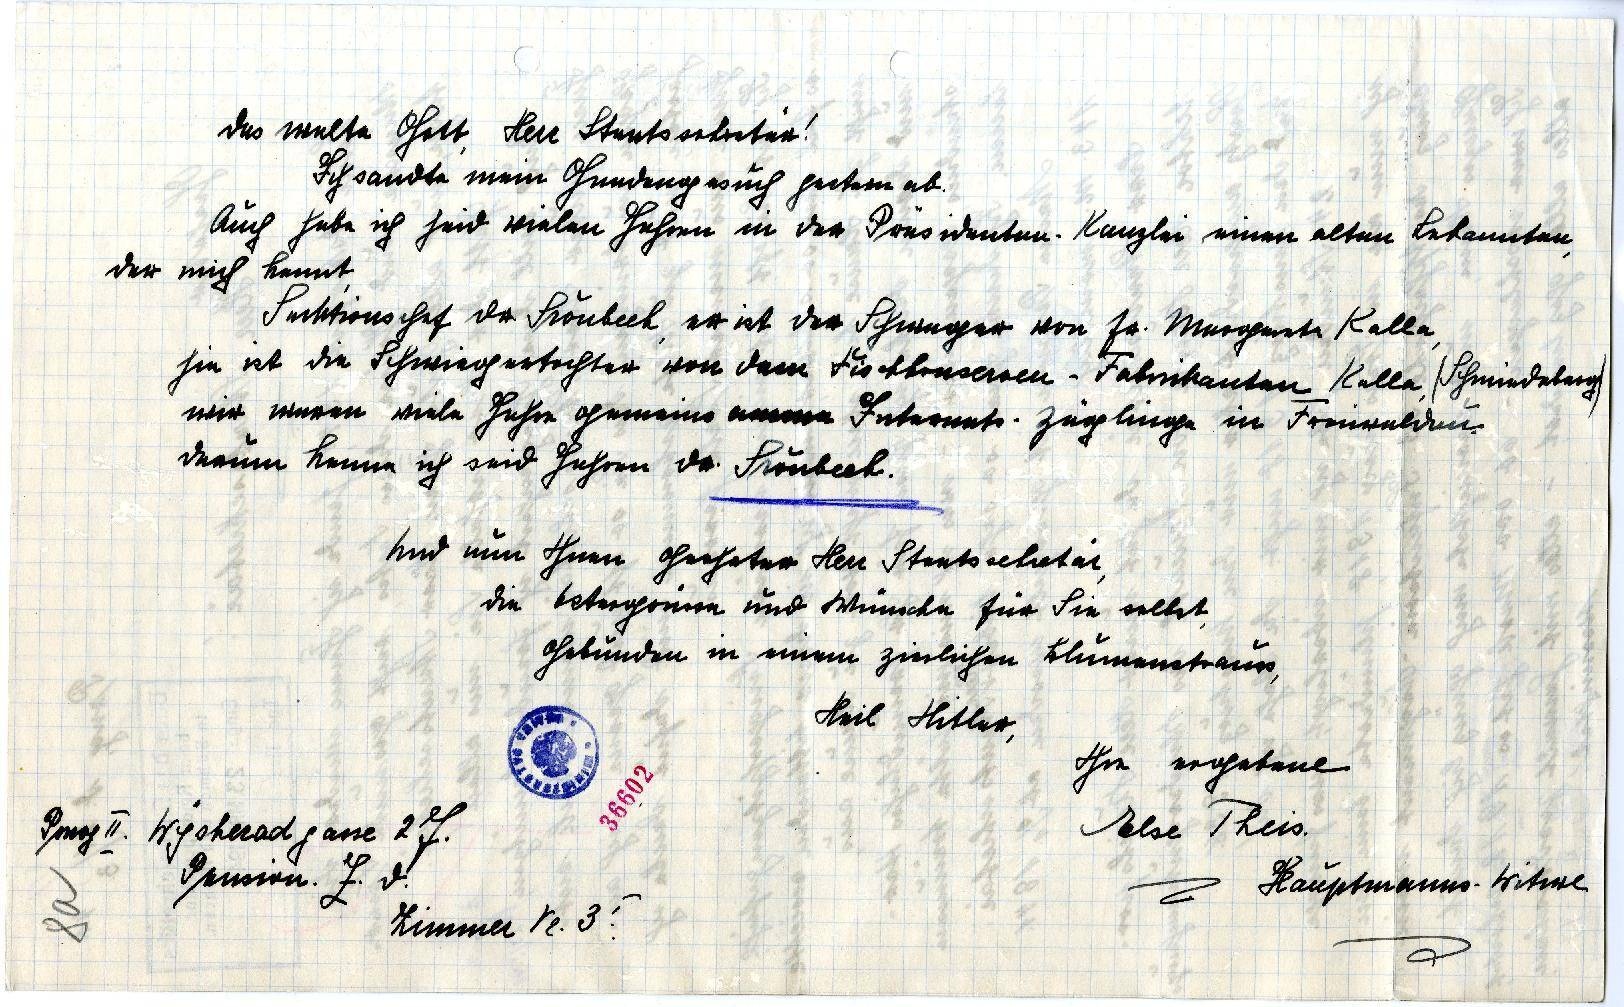 das walte Gott, Herr Staatssekretär!
Ich sandte mein Gnadengesuch gestern ab.
Auch habe ich seid vielen Jahren in der Präsidenten-Kanzlei einen alten Bekannten,
der mich kennt,
Sektionschef Dr Sronbeck, er ist der Schwager von Fr. Margarete Kalla,
sie ist die Schwiegertochter von dem Fischkonserven-Fabrikanten Kalla, (Schmiedeberg)
wir waren viele Jahre gemeins Internats-Zöglinge in Freiwaldau.
darum kenne ich seid Jahren Dr. Sronbeck.
Und nun Ihnen geehrter Herr Staatssekretär,
die Ostergrüsse und Wünsche für Sie selbst,
gebunden in einem zierlichen Blumenstrauss,
Heil Hitler,
Ihre ergebene
Else Theis.
Hauptmanns-Witwe
36602
Prag II. Wyscherad gasse 27.
Pension.
Zimmer Nr. 3
8a